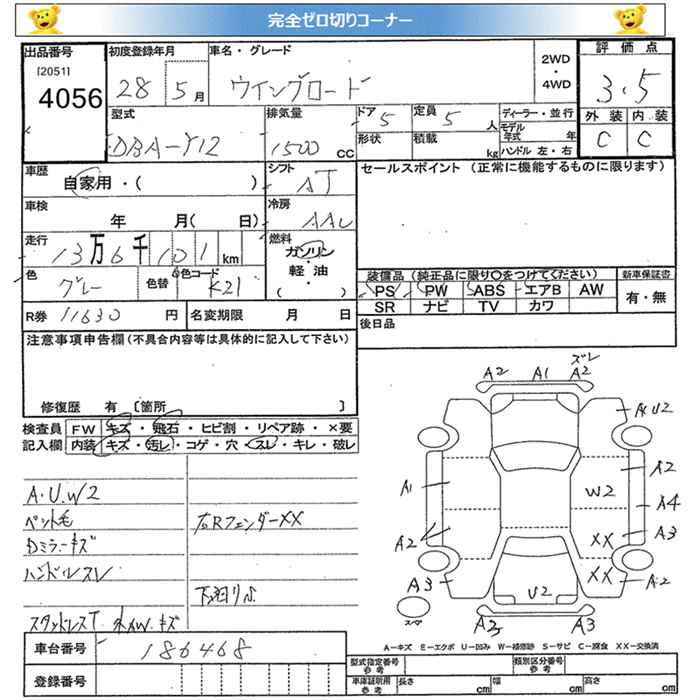 完全ゼロ切りコーナー
出品番号 初度登録年月 車名・グレード 2WD ・ 4WD 評価点
[2051]
4056
28 5月 ウイングロード 3.5
型式 排気量 ドア 5 定員 5人 ディーラー・並行 外装 内装
DBA-Y12 1500 CC 形状 積載 kg モデル年式 年 C C
ハンドル 左・右
車歴 シフト セールスポイント (正常に機能するものに限ります)
自家用・( ) AT
車検 冷房
年 月( 日) AAC
走行 燃料
13万6千101km ガソリン・軽油・( )
色 色替 色コード 装備品 (純正品に限り○をつけてください) 新車保証書
グレー K21 PS PW ABS エアB AW 有・無
SR ナビ TV カワ
R券 11630 円 名変期限 月 日 後日品
注意事項申告欄(不具合内容等は具体的に記入して下さい)
修復歴 有 [箇所 ]
検査員 FW キズ・飛石・ヒビ割・リペア跡・×要
記入欄 内装 キズ・汚レ・コゲ・穴・スレ・キレ・破レ
A.U.W2
ペット毛 右Rフェンダーxx
Dミラーキズ
ハンドルスレ
スタッドレスT
ズレ
A2 A1 A2
AU2
A1 W2 A2
A4
A2 XX A3
A3 XX A2
U2
A2 A3
車台番号 186468
A−キズ E−エクボ U−凹み W−補修跡 S−サビ C−腐食 XX−交換済
登録番号
型式指定番号 参考 類別区分番号 参考
車庫証明用 参考 長さ cm 幅 cm 高さ cm